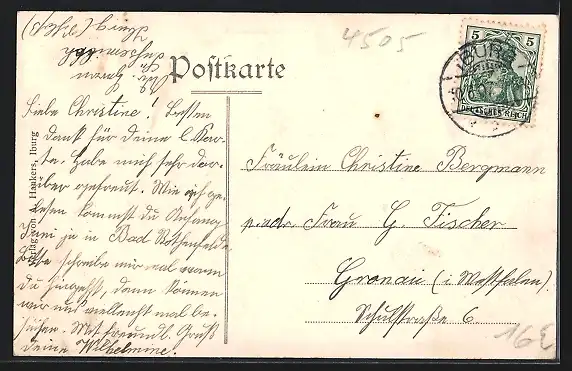 4505
Postkarte
IBURG
5 5
DEUTSCHES REICH
Liebe Christine! Besten
Dank für deine l. Kar-
te. Habe mich sehr dar-
über gefreut. Wie ich ge-
lesen kommst du Anfang
Juni ja in Bad Rothenfelde
Bitte schreibe mir mal wann
du hingehst, dann können
wir uns vielleicht mal be-
suchen. Mit freundl. Gruß
deine Wilhelmine.
Verlag von Hankers, Iburg
Fräulein Christine Bergmann
p. adr. Frau G. Fischer
Gronau (i. Westfalen)
Schulstraße 6
16E